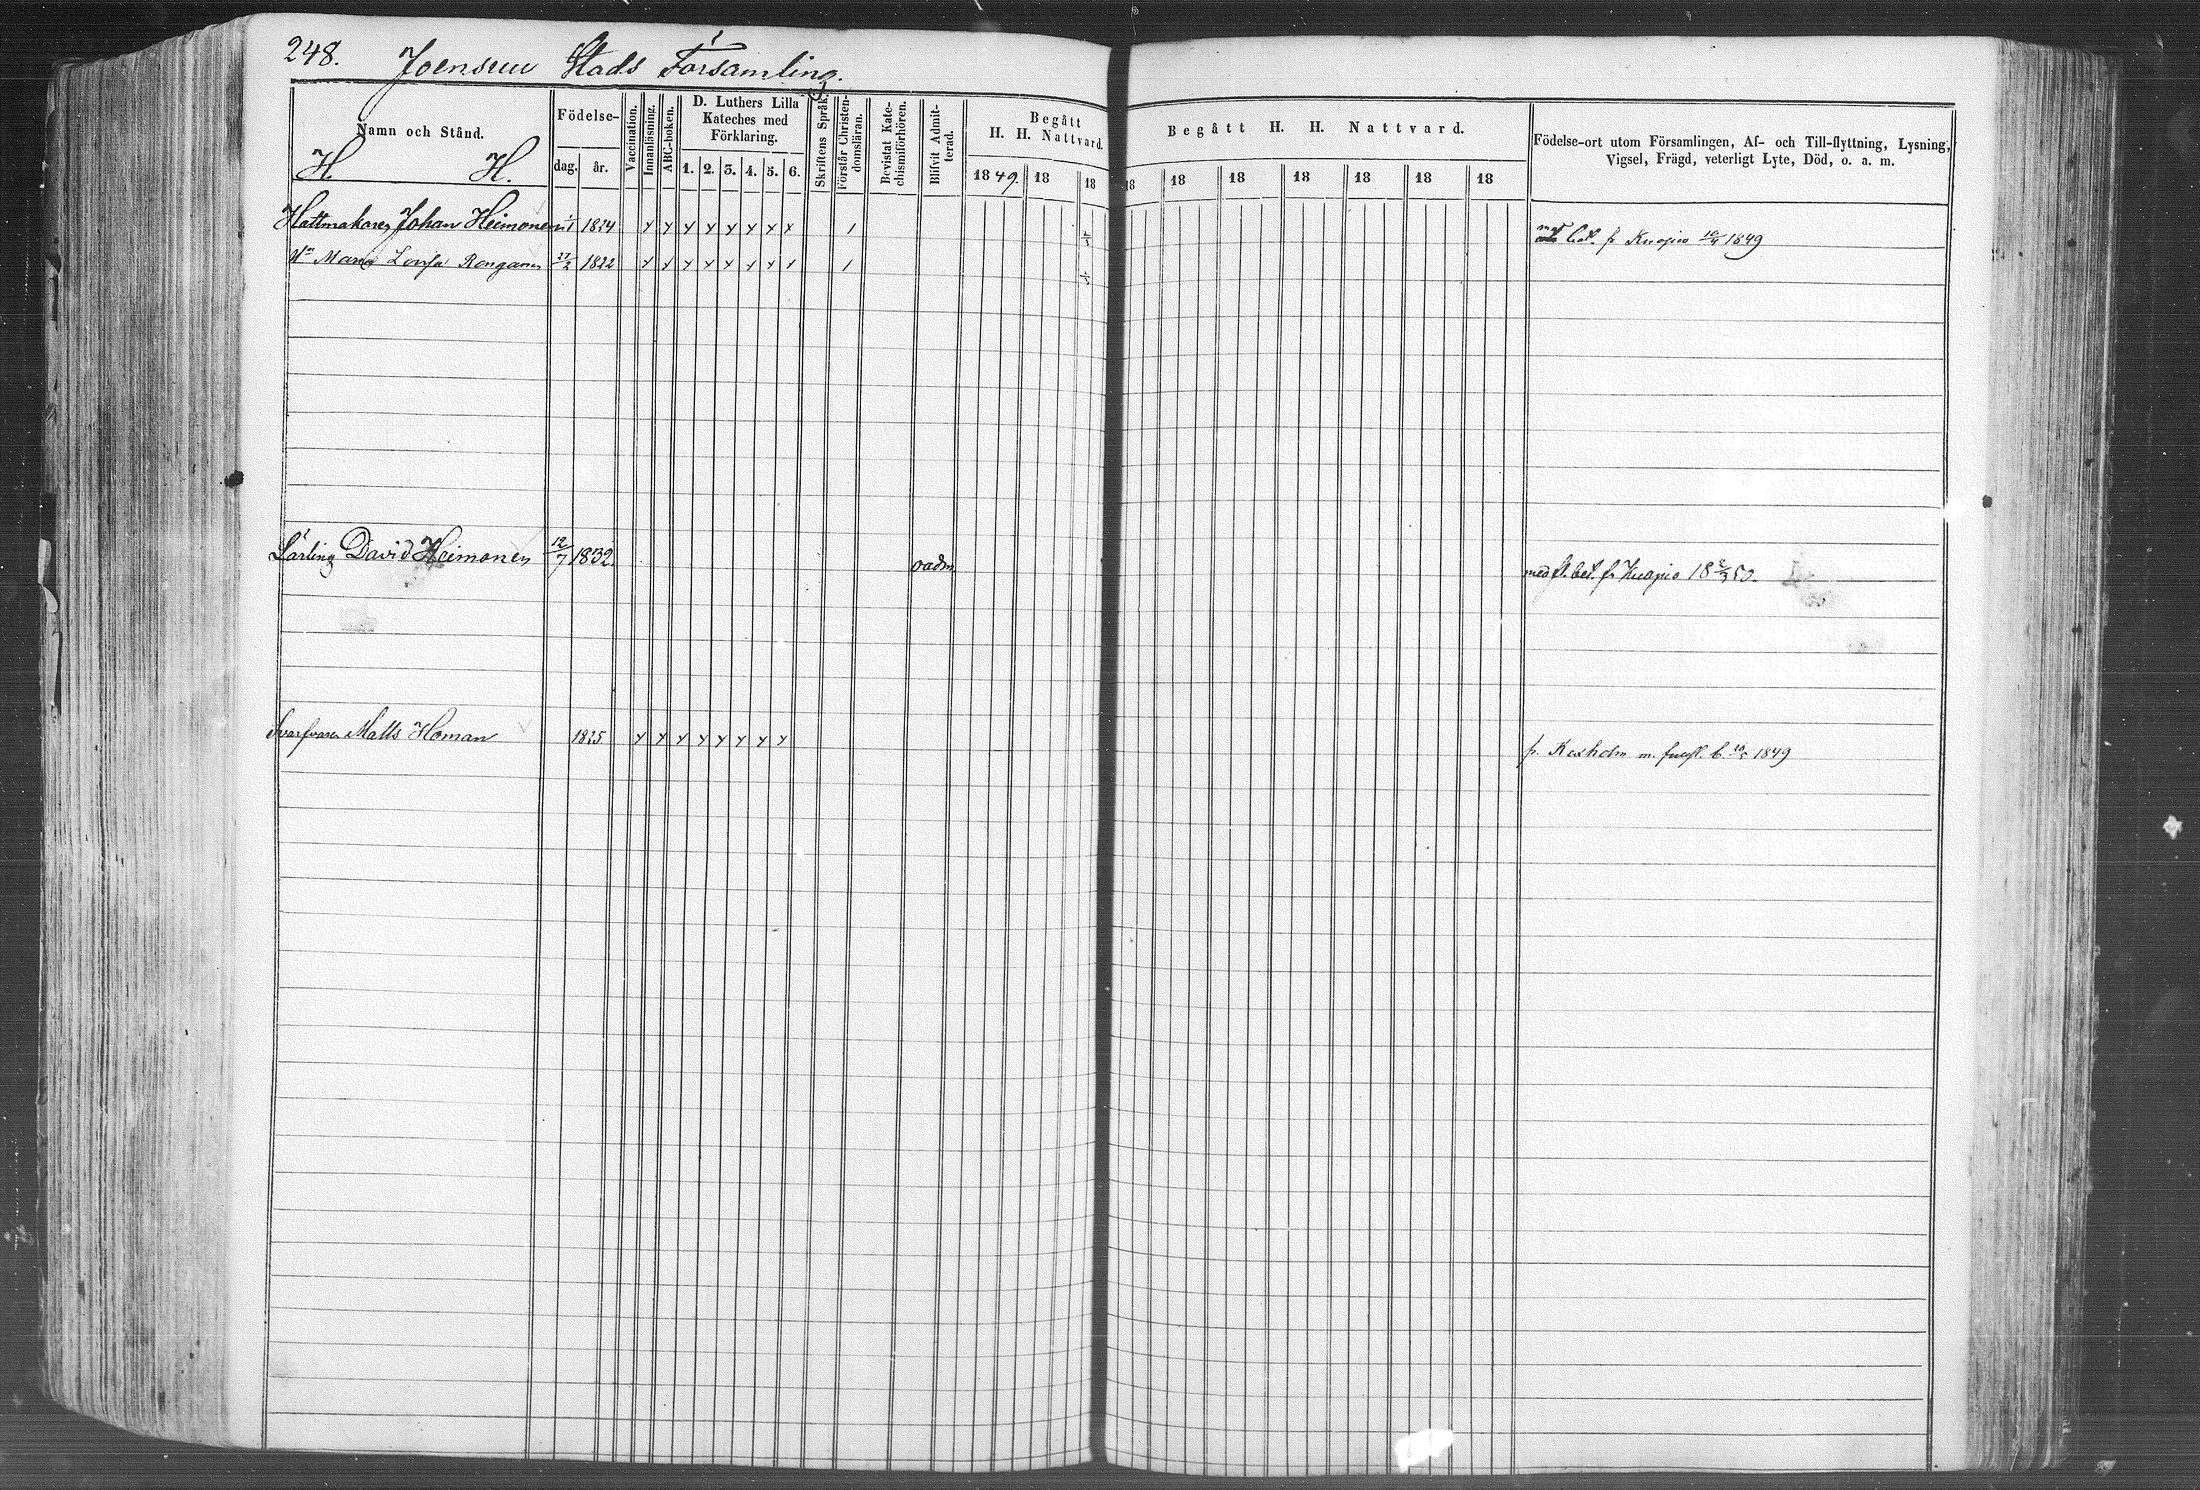 248. Joensuu Stads Församling.
Namn och Stånd.
H. H.
Födelse-
dag. år.
Vaccination.
Innanläsning.
ABC-boken.
D. Luthers Lilla
Kateches med
Förklaring.
1. 2. 3. 4. 5. 6.
Skriftens Språk.
Förstår Christen-
domsläran.
Bevistat Kate-
chismiförhören.
Blifvit Admit-
terad.
Begått
H. H. Nattvard.
1849. 18 18
Begått H. H. Nattvard.
18 18 18 18 18 18 18
Födelse-ort utom Församlingen, Af- och Till-flyttning, Lysning,
Vigsel, Frägd, veterligt Lyte, Död, o. a. m.
Hattmakaren Johan Heimonen 1824 bet. fr Kuopio 10/4 1849
Hu Maria Lovisa Ronganen 27/2 1822
Lärling David Heimonen 12/7 1832. oadm med fl. bet. fr Kuopio 18 50.
Svarfvaren Matts Homan 1825 fr. Kexholm m. b. 1849